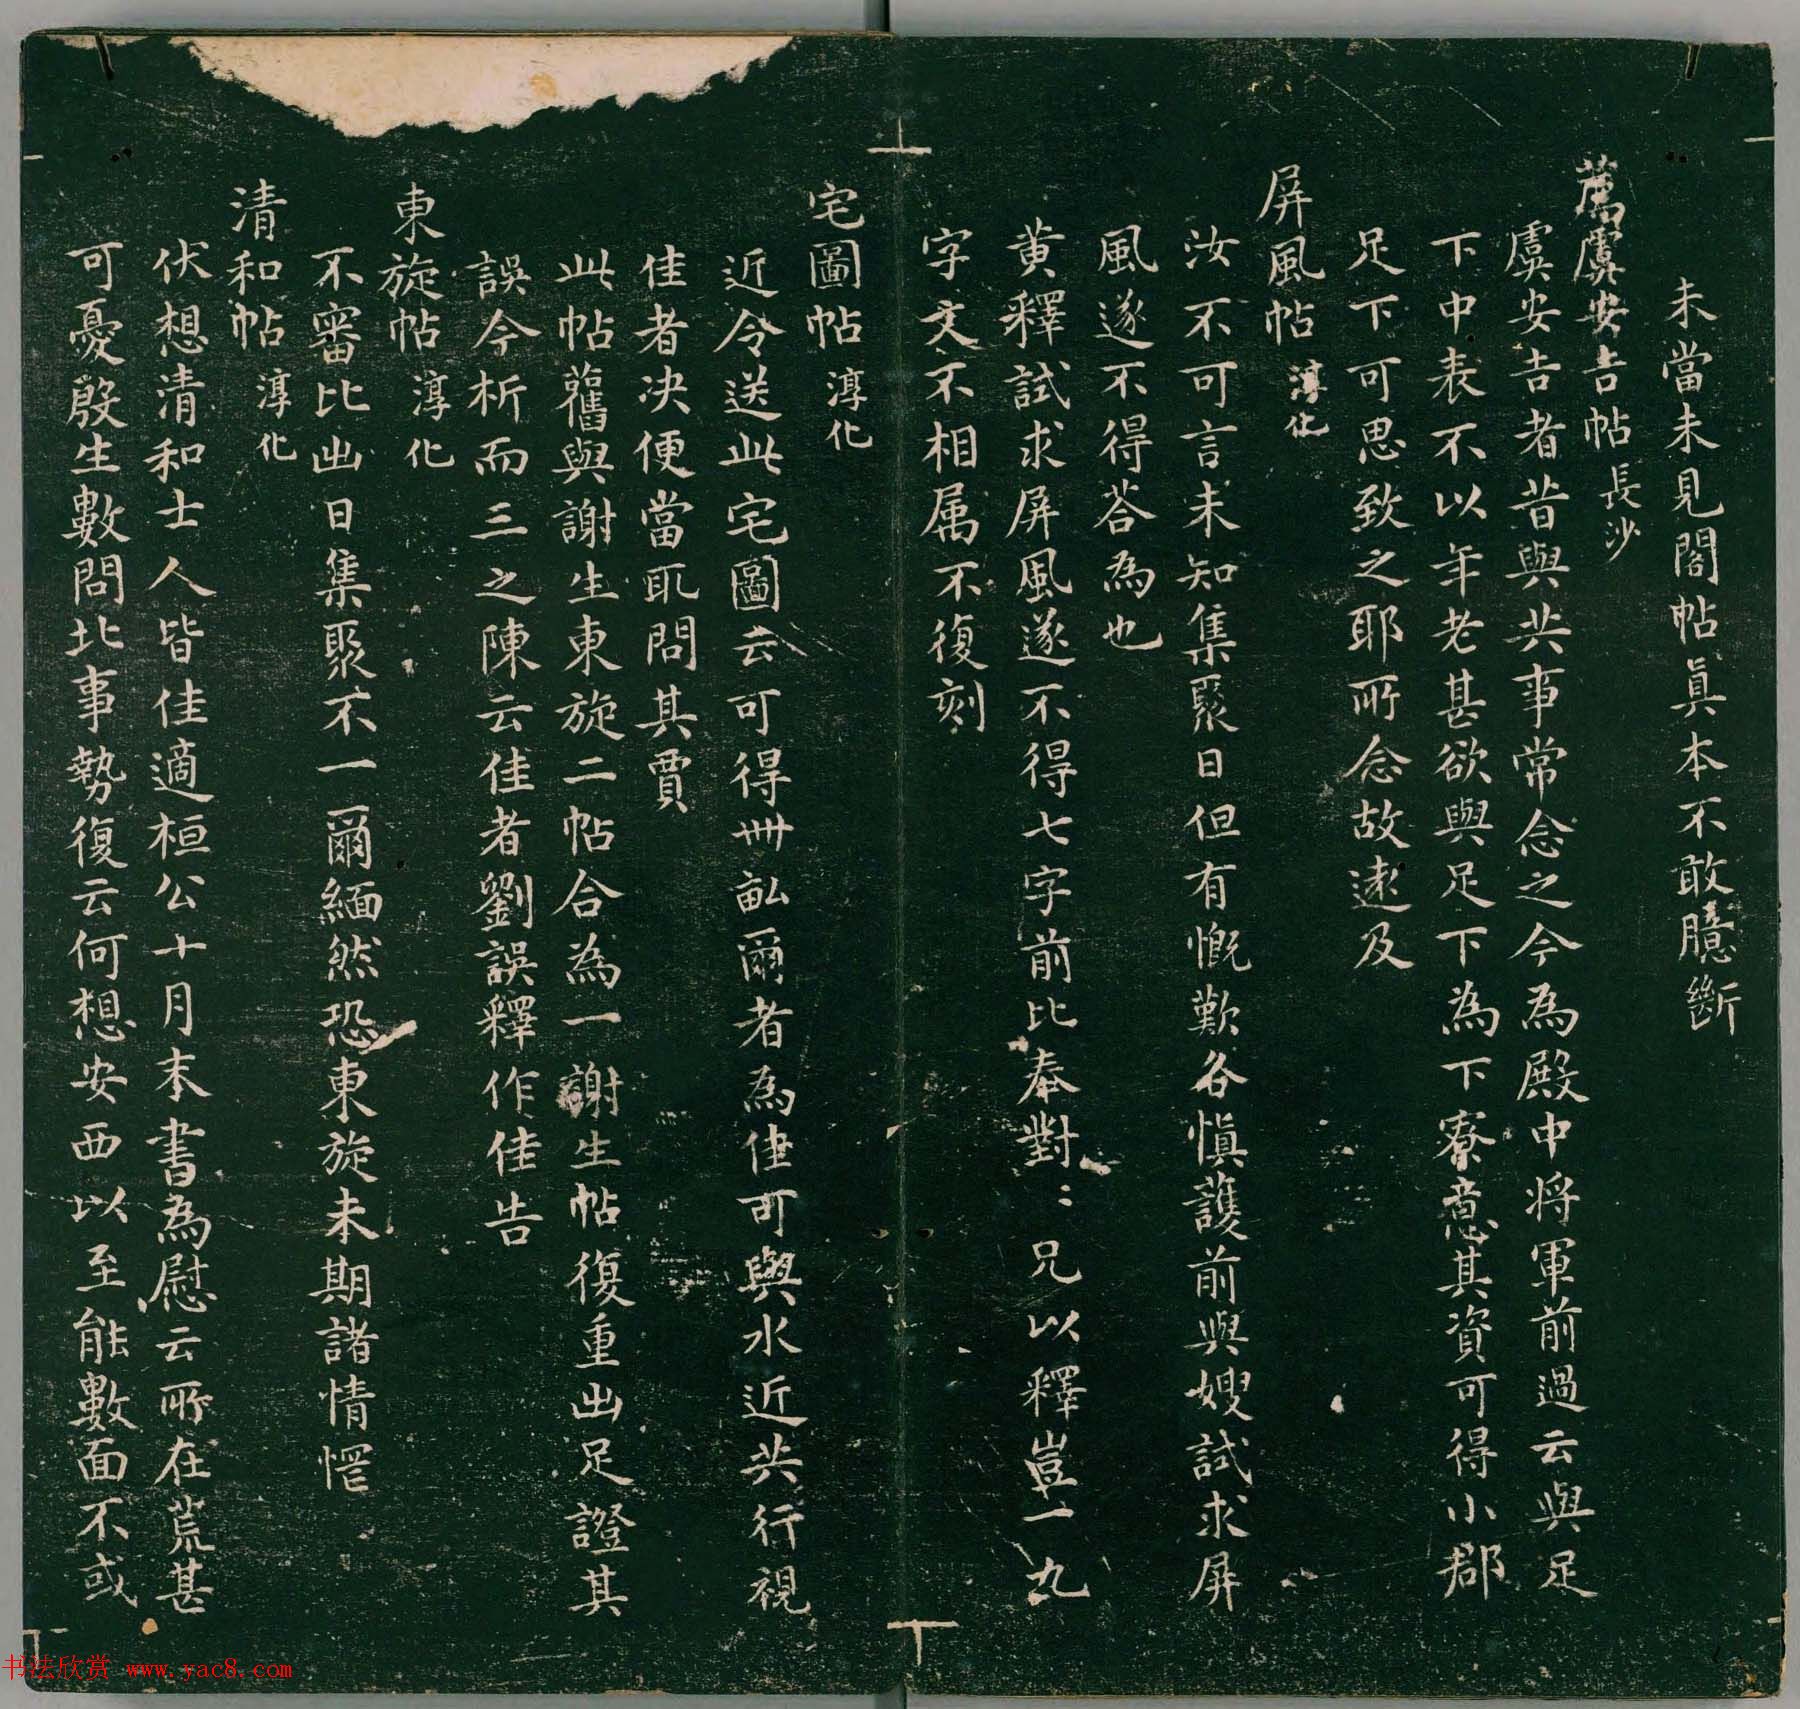 未當未見閣帖眞本不敢臆斷
薦虞安吉帖 長沙
虞安吉者昔與共事常念之今為殿中将軍前過云與足
下中表不以年老甚欲與足下為下寮意其資可得小郡
足下可思致之耶所念故遠及
屏風帖 淳化
汝不可言未知集聚日但有慨歎各慎護前與嫂試求屏
風遂不得荅為也
黄釋試求屏風遂不得七字前比奉對:兄以釋豈一九
字文不相属不復刻
宅圖帖 淳化
近令送此宅圖云可得卌畝爾者為佳可與水近共行視
佳者决便當取問其賈
此帖舊與謝生東旋二帖合為一謝生帖復重出足證其
誤今析而三之陳云佳者劉誤釋作佳告
東旋帖 淳化
不審比出日集聚不一爾緬然恐東旋未期諸情惘
清和帖 淳化
伏想清和士人皆佳適桓公十月末書為慰云所在荒甚
可憂殷生數問北事勢復云何想安西以至能數面不或
书法欣赏 www.yac8.com